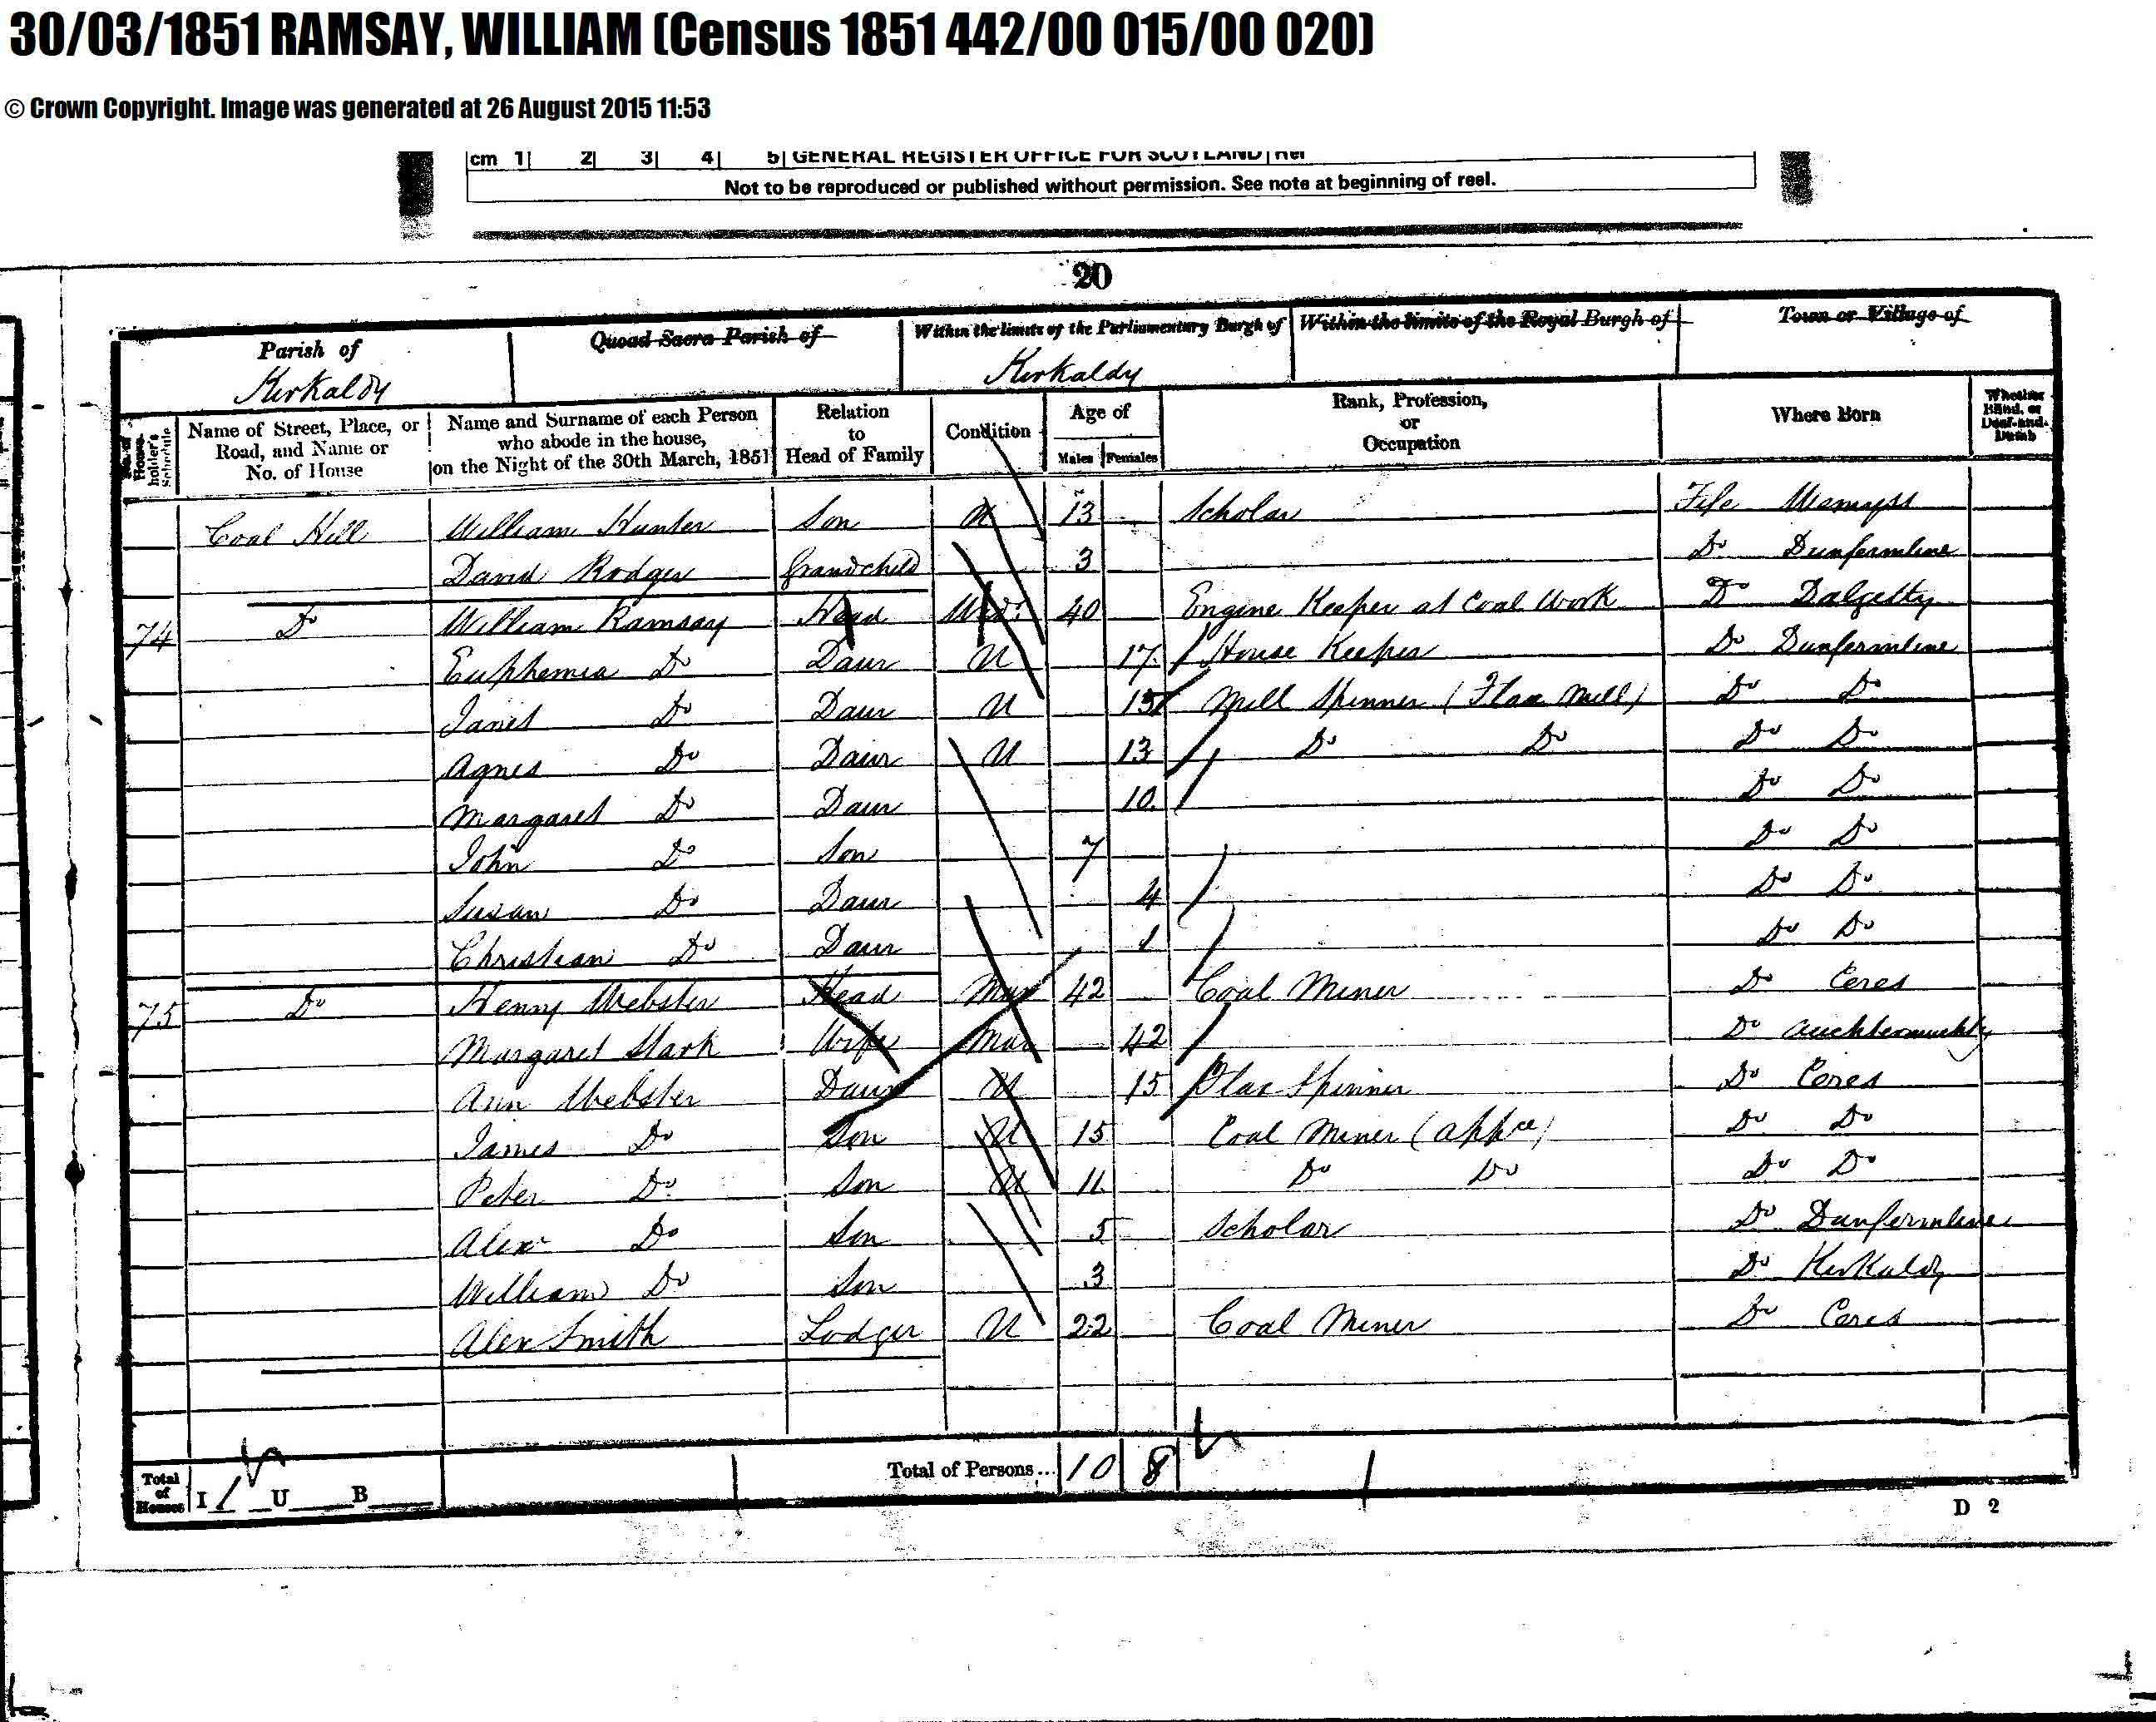 30/03/1851 RAMSAY, WILLIAM (Census 1851 442/00 015/00 020)
© Crown Copyright. Image was generated at 26 August 2015 11:53
cm 1 2 3 4 5 GENERAL REGISTER OFFICE FOR SCOTLAND Ref
Not to be reproduced or published without permission. See note at beginning of reel.
20
Parish of Quoad Sacra Parish of Within the limits of the Parliamentary Burgh of Within the limits of the Royal Burgh of Town or Village of
Kirkaldy Kirkaldy
No. of Householder's Schedule Name of Street, Place, or Road, and Name or No. of House Name and Surname of each Person who abode in the house, on the Night of the 30th March, 1851 Relation to Head of Family Condition Age of Males Females Rank, Profession, or Occupation Where Born Whether Blind, or Deaf-and-Dumb
Coal Hill William Hunter Son U 13 Scholar Fife Wemyss
David Rodger Grandchild 3 Do Dunfermline
74 Do William Ramsay Head Widr 40 Engine Keeper at Coal Work Do Dalgetty
Euphemia Do Daur U 17 House Keeper Do Dunfermline
Janet Do Daur U 15 Mill Spinner (Flax Mill) Do Do
Agnes Do Daur U 13 Do Do Do Do
Margaret Do Daur 10 Do Do
John Do Son 7 Do Do
Susan Do Daur 4 Do Do
Christian Do Daur 1 Do Do
75 Do Henny Webster Head Mar 42 Coal Miner Do Ceres
Margaret Stark Wife Mar 42 Do Auchtermuchty
Ann Webster Daur U 15 Flax Spinner Do Ceres
James Do Son U 15 Coal Miner (appce) Do Do
Peter Do Son U 11 Do Do Do Do
Alexr Do Son 5 Scholar Do Dunfermline
William Do Son 3 Do Kirkaldy
Alex Smith Lodger U 22 Coal Miner Do Ceres
Total of Houses I 1 U B Total of Persons... 10 8
D 2